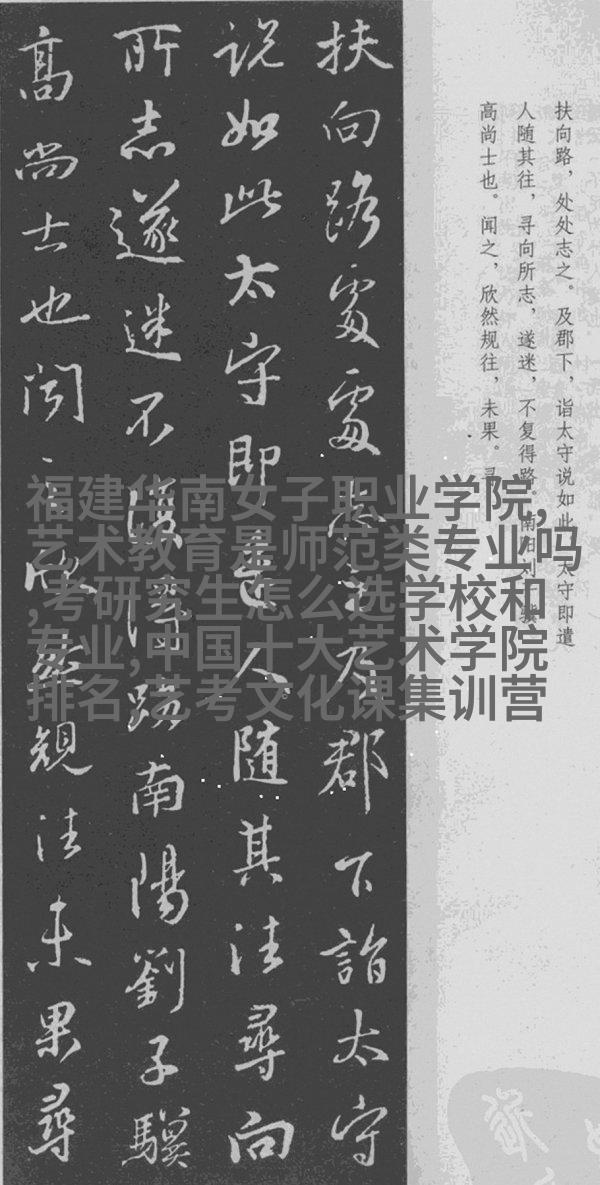 扶向路，处处志之。及郡下，诣太守说如此。太守即遣
人随其往，寻向所志，遂迷，不复得路。南阳刘子骥，
高尚士也。闻之，欣然规往，未果。寻
扶向路處處志之及郡下詣太守
説如此太守即遣人随其往尋向
所志遂迷不復得路南陽劉子驥
高尚士也聞之欣然規往未果尋
福建华南女子职业学院,
艺术教育是师范类专业吗
,考研究生怎么选学校和
专业,中国十大艺术学院
排名,艺考文化课集训营